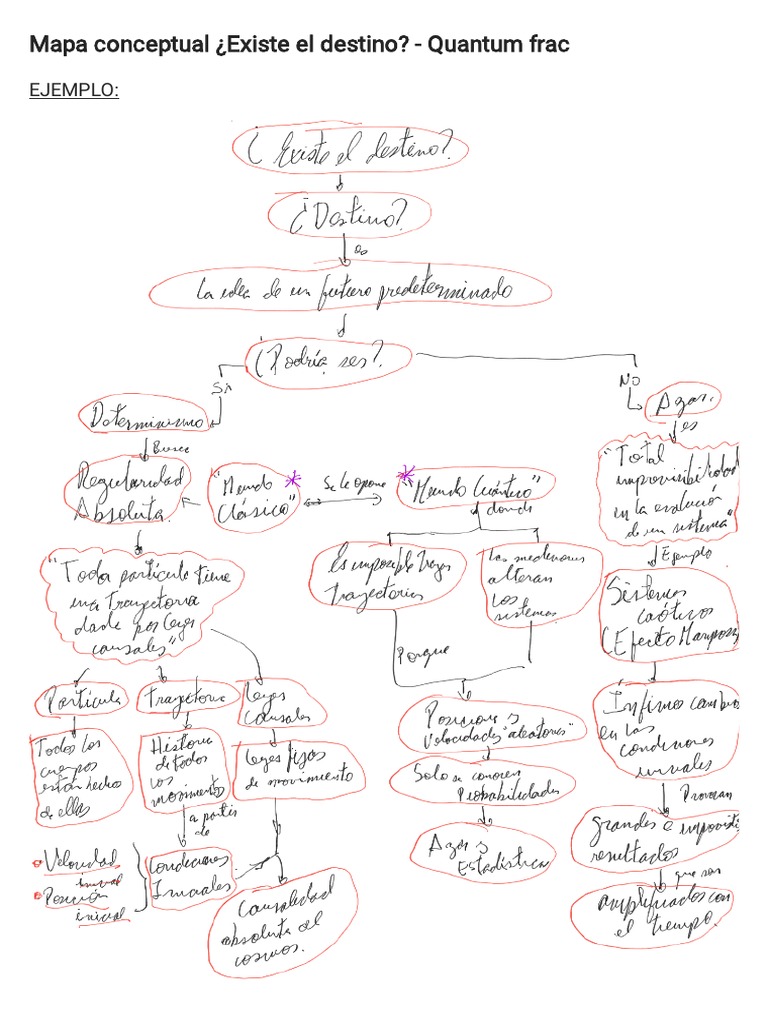 Mapa conceptual ¿Existe el destino? - Quantum frac
EJEMPLO:
¿Existe el destino?
¿Destino?
es
La idea de un futuro predeterminado
¿Podría ser?
SÍ
NO
Determinismo
Azar.
Busca
es
Regularidad
Absoluta.
"Mundo
Clásico"
Se le opone
"Mundo Cuántico"
donde
"Total
en la evolución
de un sistema"
Ejemplo
"Toda partícula tiene
una Trayectoria
dada por leyes
causales"
Es imposible trazar
Trayectorias
Las mediciones
alteran
los
sistemas
Sistemas
caóticos
(Efecto Mariposa
Porque
Partícula
Trayectoria
Leyes
causales
Todos los
cuerpos
están hechos
de ellas
Historia
de todos
los
movimientos
Leyes fijas
de movimiento
Posiciones y
Velocidades "aleatorias"
Ínfimos cambios
en las
condiciones
iniciales
Solo se conocen
Probabilidades
Provocan
a partir
de
Azar y
Estadística
grandes e
resultados
Velocidad
inicial
Posición
inicial
Condiciones
Iniciales
que son
Causalidad
absoluta al
cosmos.
amplificados con
el tiempo.